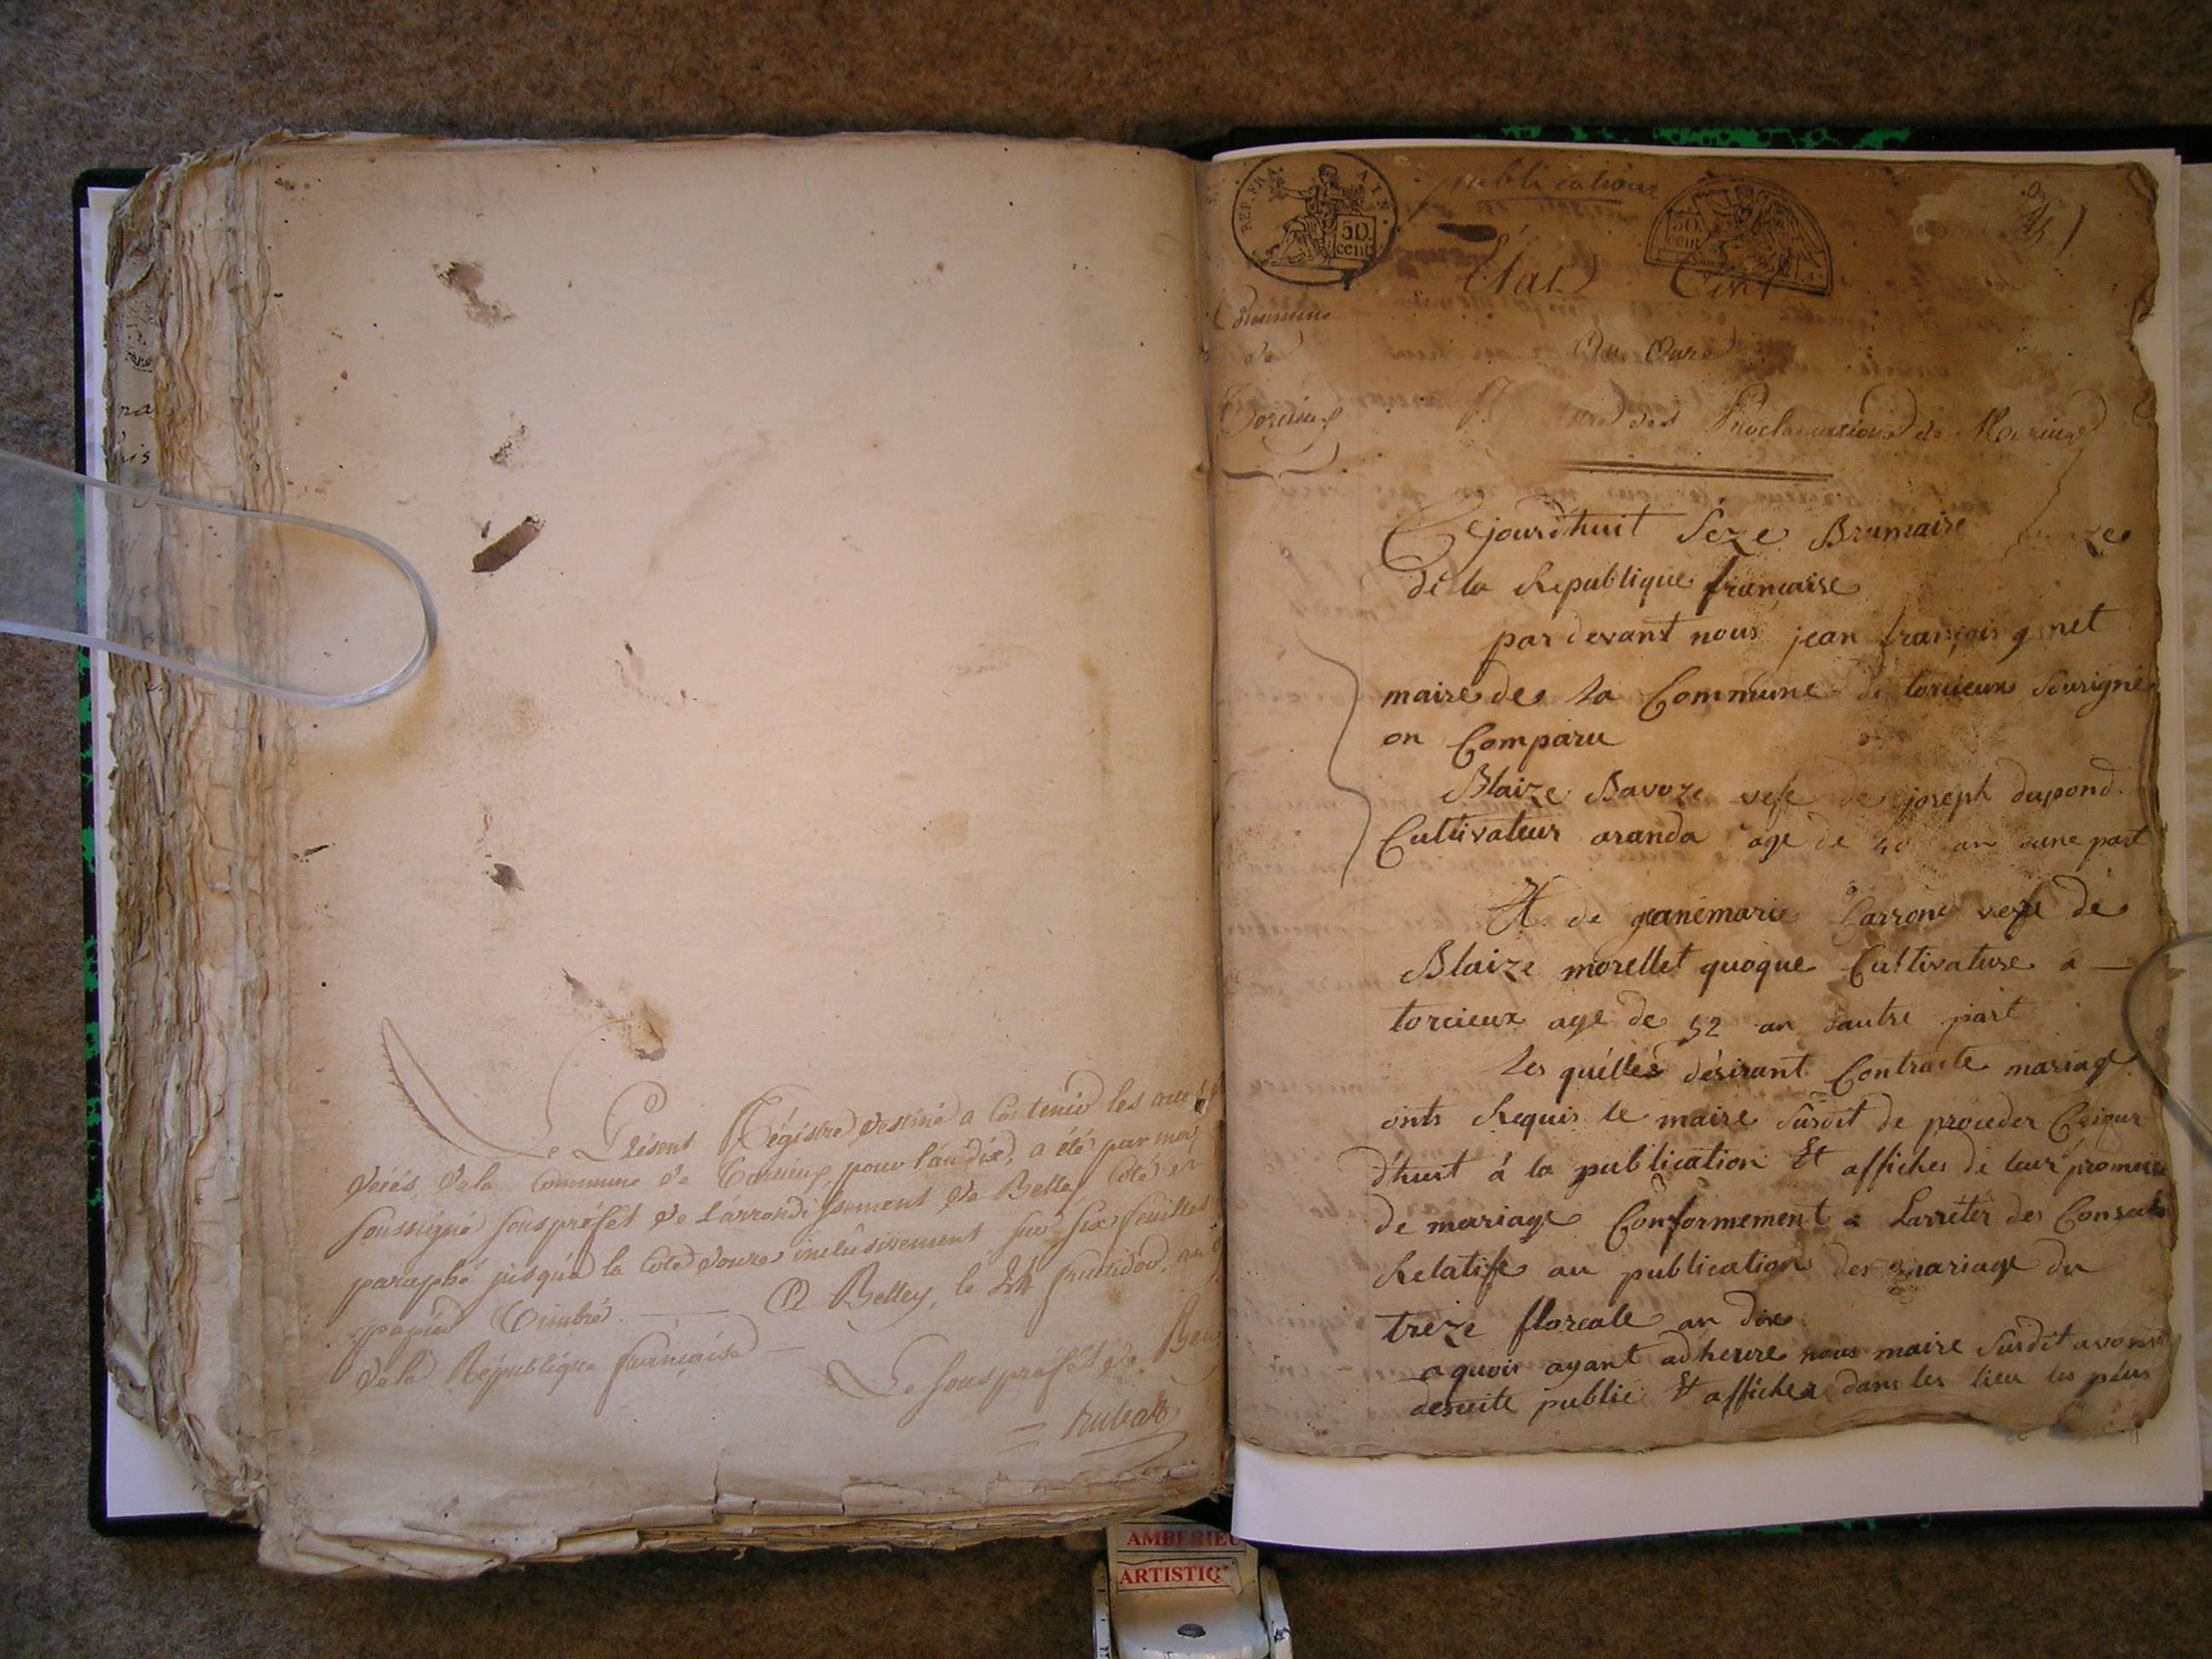 Le Présent Régistre destiné a Contenir les actes de
décés de la Commune de Torcieux, pour l'an dix, a été par moi
soussigné souspréfet de l'arrondissement de Belley Coté et
paraphé jusqu'a la Cote douze inclusivement sur six feuilles
papier Timbré. A Belley, le 24 fructidor an
de la République française
Le souspréfet de
publications
REP. FRA
50. cent
50. cent
Etat Civil
Commune
de
Torcieux
An Onze
des Proclamations de Mariage
Cejourdhuit Seze Brumaire
de la Republique française
par devant nous jean françois
maire de la Commune de torcieux Sousigné
on Comparu
Blaize Savoze vefe de joseph dupond
Cultivateur aranda age de 40 an dune part
Et de janemarie vefe de
Blaize morellet quoque Cultivature a
torcieux age de 52 an dautre part
les quélles désirant Contracte mariage
onts Requis le maire Susdit de proceder Cejour
d'huit à la publication Et affiches de leur promesse
de mariage Conformement a Larrêter des Consuls
Relatife au publication des mariage du
treze floreale an dix
a quoi ayant adherere nous maire Susdit avons
desuite publie Et affiches dans les lieu les plus
AMBERIEU
ARTISTIQ